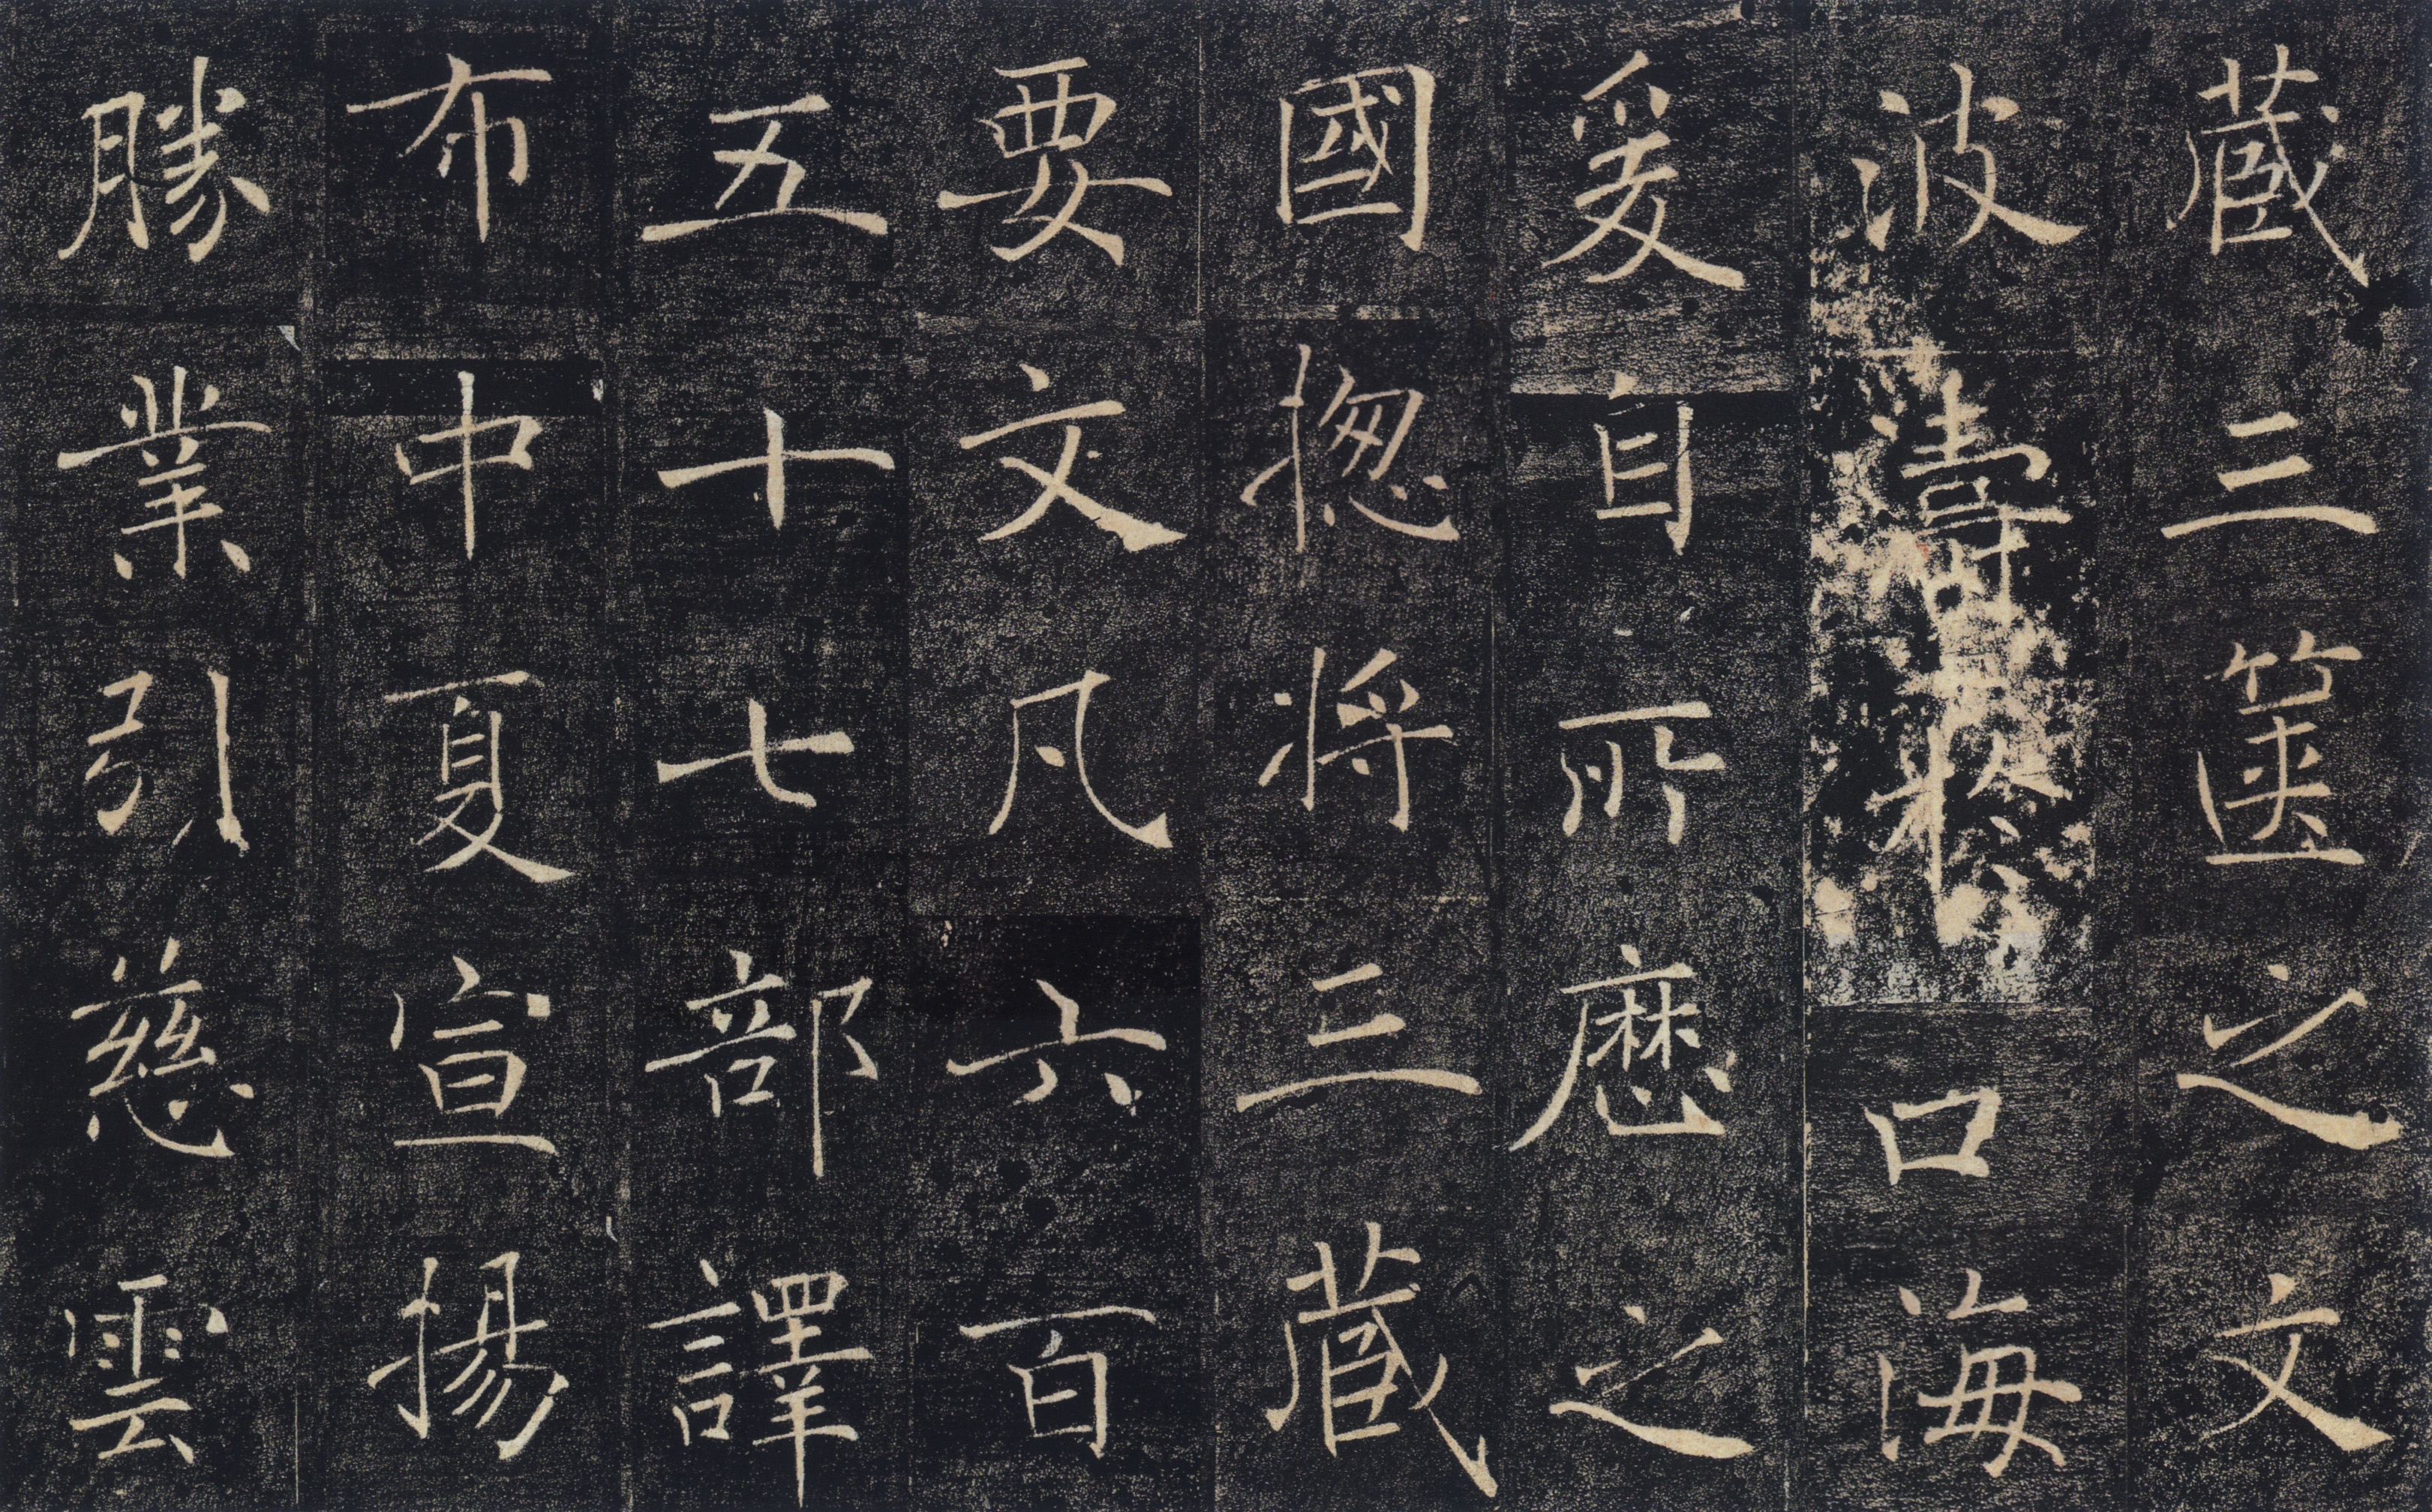 藏三箧之文
波濤於口海
爰自所歷之
國揔将三藏
要文凡六百
五十七部譯
布中夏宣揚
勝業引慈雲